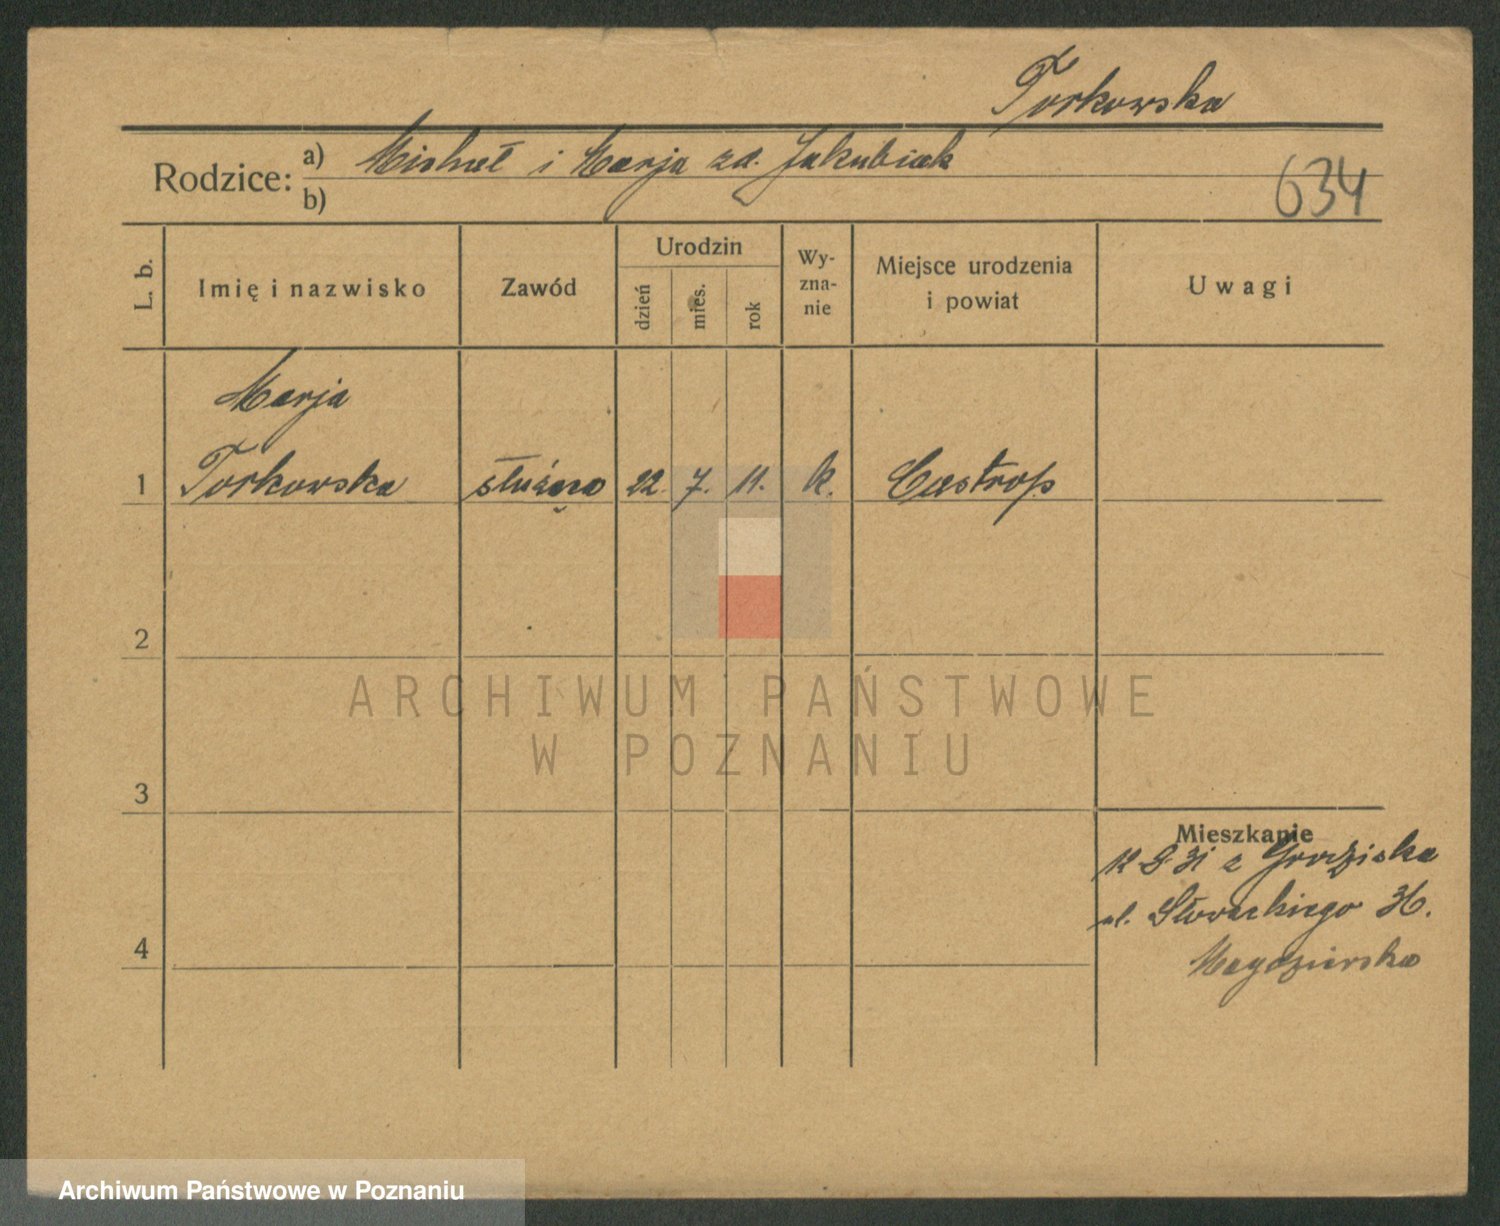 Torkowska
Rodzice: a) Michał i Marja zd. Jakubiak
b)
634
L. b.
Imię i nazwisko
Zawód
Urodzin
dzień
mies.
rok
Wy-
zna-
nie
Miejsce urodzenia
i powiat
Uwagi
Marja
1 Torkowska służąca 22. 7. 11. k. Castrop
2
3
4
Mieszkanie
12 8 31 z Grodziska
ul. Słowackiego 36.
ARCHIWUM PAŃSTWOWE
W POZNANIU
Archiwum Państwowe w Poznaniu